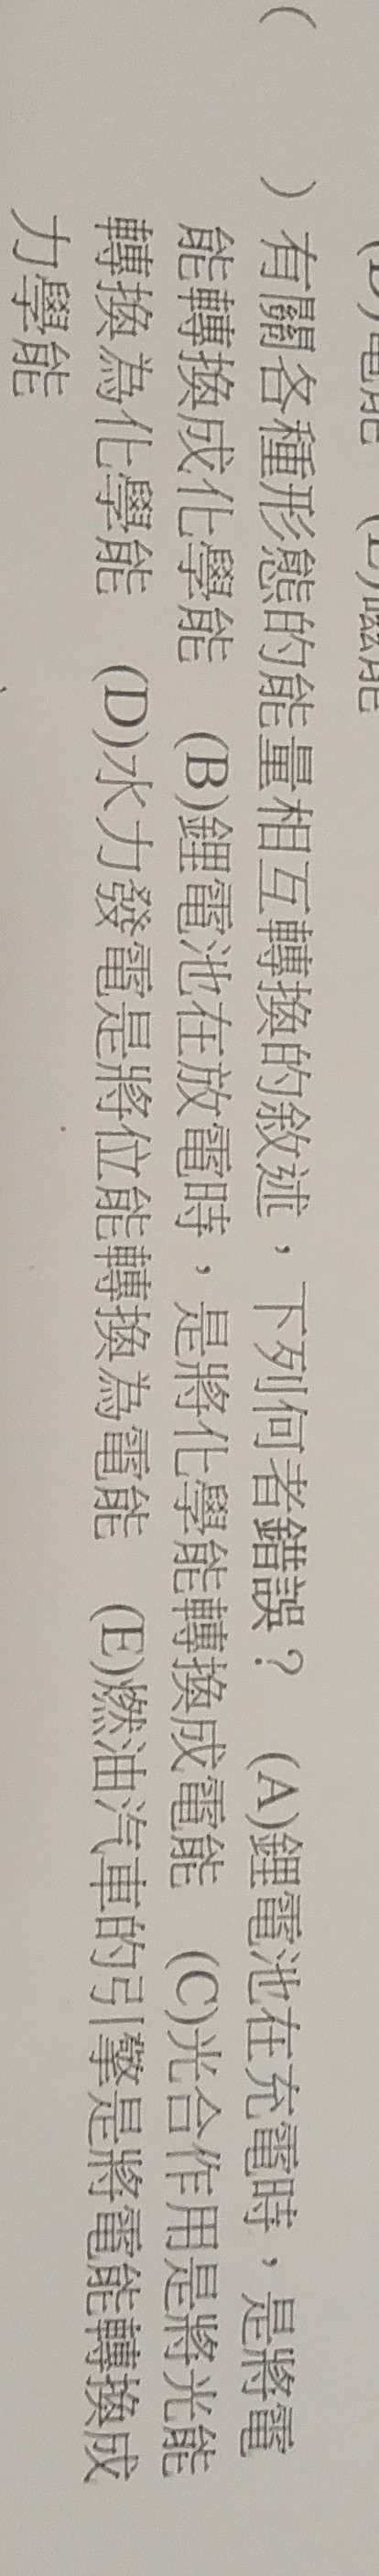 (B)電能 (E)磁能
( ) 有關各種形態的能量相互轉換的敘述，下列何者錯誤？ (A)鋰電池在充電時，是將電
能轉換成化學能 (B)鋰電池在放電時，是將化學能轉換成電能 (C)光合作用是將光能
轉換為化學能 (D)水力發電是將位能轉換為電能 (E)燃油汽車的引擎是將電能轉換成
力學能